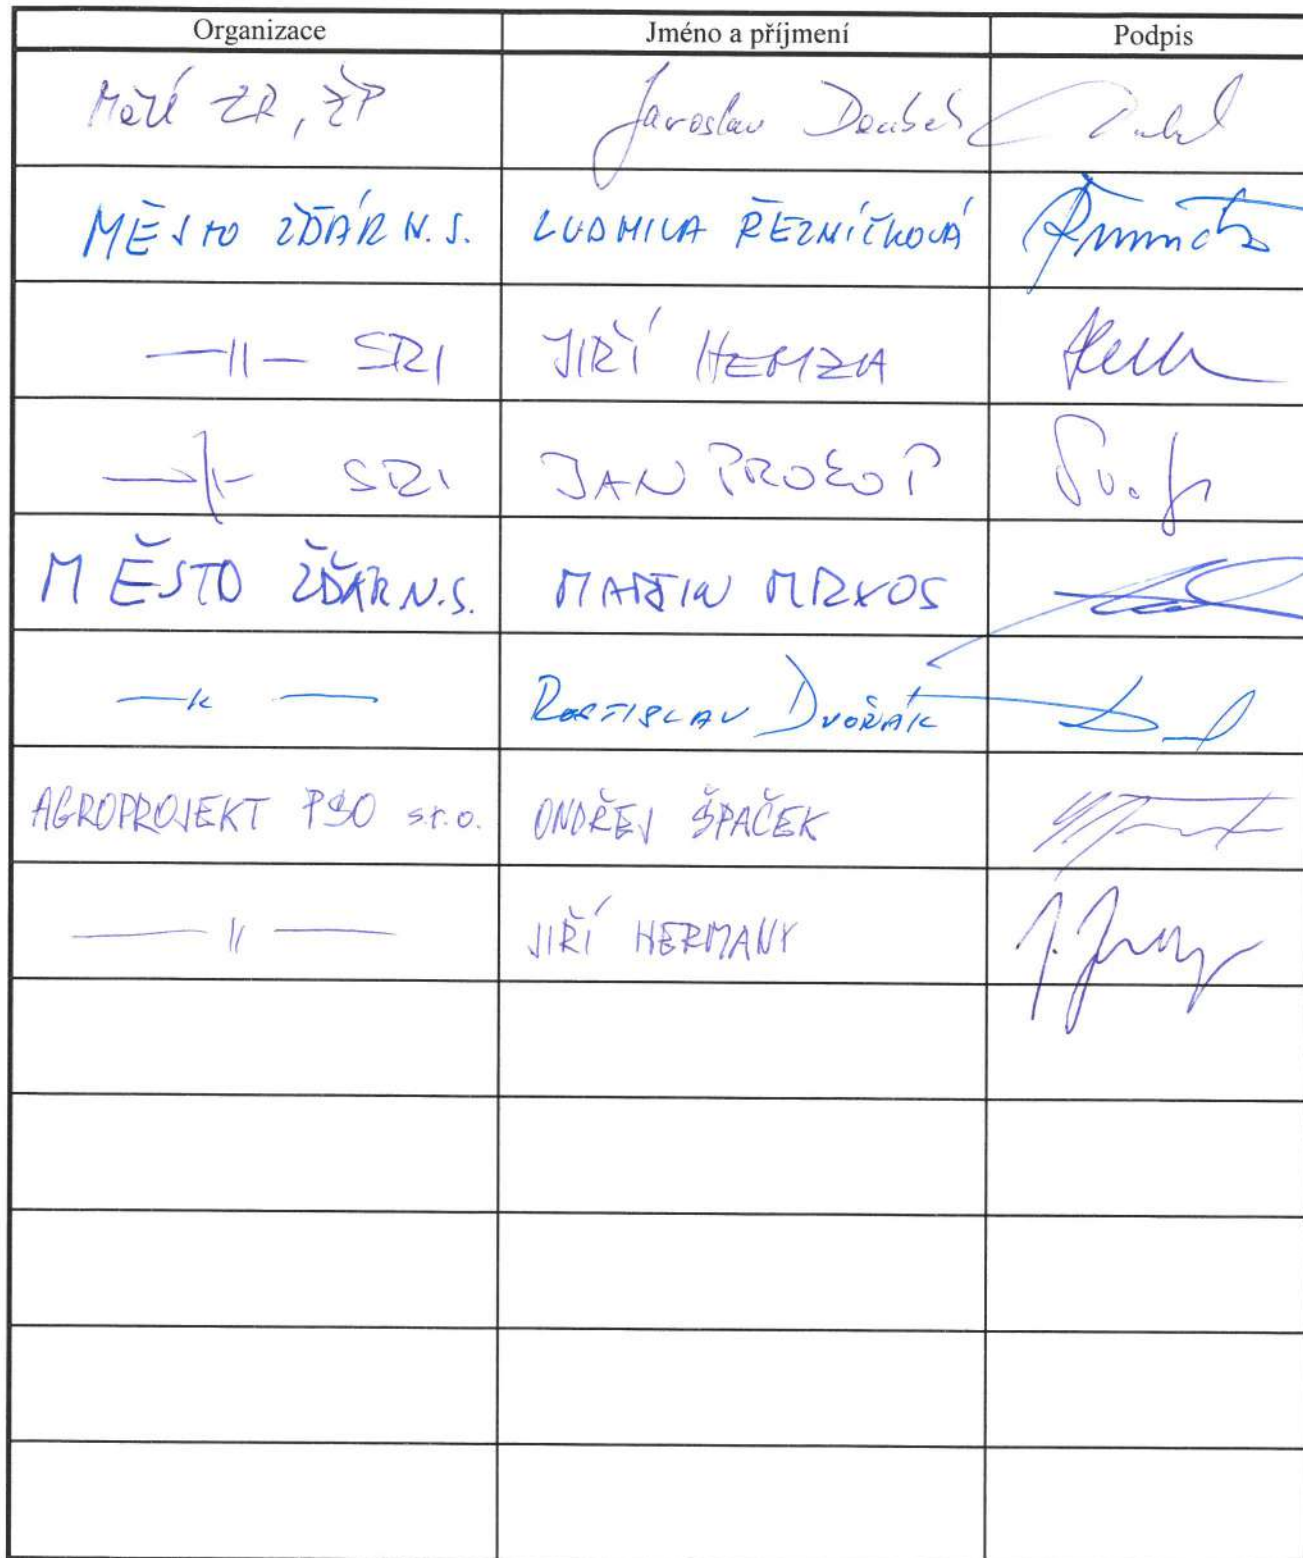 Organizace Jméno a příjmení Podpis
MěÚ ZR, ŽP Jaroslav Doubek
MĚSTO ŽĎÁR N.S. LUDMILA ŘEZNÍČKOVÁ
—II— SRI JIŘÍ HEMZA
—II— SRI JAN PROKOP
MĚSTO ŽĎÁR N.S. MARTIN MRKOS
—II— ROSTISLAV DVOŘÁK
AGROPROJEKT PSO s.r.o. ONDŘEJ ŠPAČEK
—II— JIŘÍ HERMANY